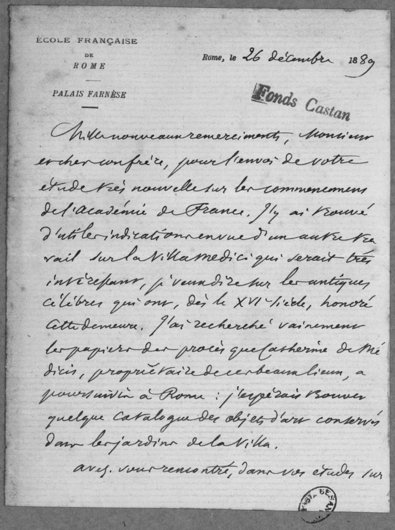 ÉCOLE FRANÇAISE
DE
ROME
PALAIS FARNÈSE
Rome, le 26 décembre 1889
Fonds Castan
Mille nouveaux remerciments, Monsieur
et cher confrère, pour l'envoi de votre
étude très nouvelle sur les commencemens
de l'Académie de France. J'y ai trouvé
d'utiles indications en vue d'un autre tra
vail sur la Villa Medici qui serait très
intéressant, je veux dire sur les antiques
célèbres qui ont, dès le XVIe siècle, honoré
cette demeure. J'ai recherché vainement
les papiers des procès que Catherine de Mé
dicis, propriétaire de ces beaux lieux, a
poursuivis à Rome : j'espérais trouver
quelque catalogue des objets d'art conservés
dans les jardins de la Villa.
avez-vous rencontré, dans vos études sur